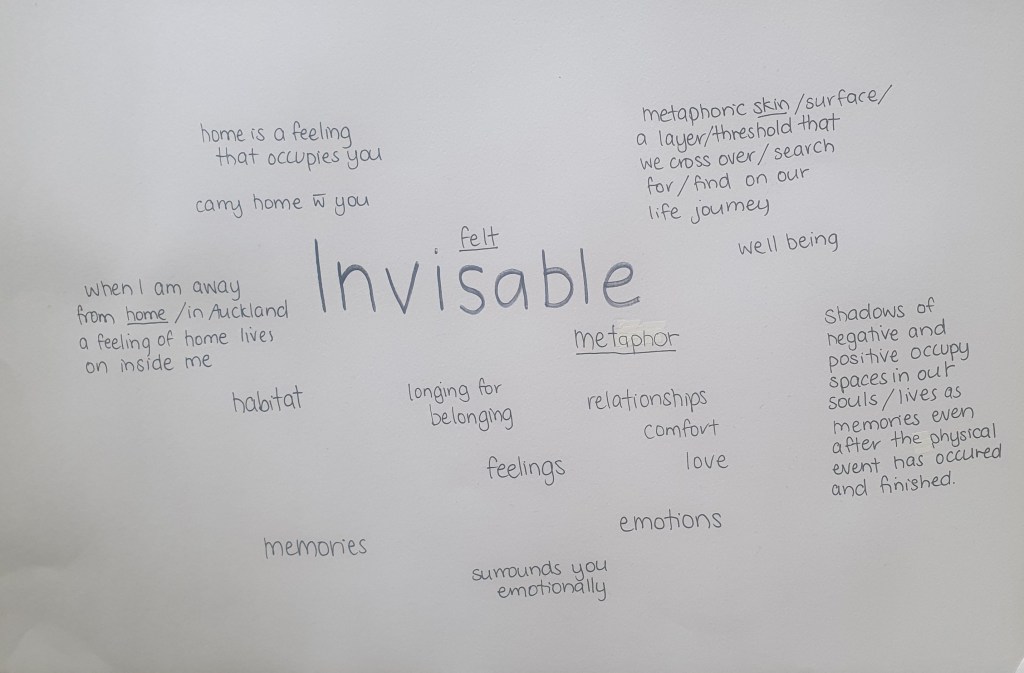 home is a feeling
that occupies you
carry home w̅ you
metaphoric skin/surface/
a layer/threshold that
we cross over/search
for/find on our
life journey
well being
felt
Invisable
metaphor
when I am away
from home/in Auckland
a feeling of home lives
on inside me
shadows of
negative and
positive occupy
spaces in our
souls/lives as
memories even
after the physical
event has occured
and finished.
habitat
longing for
belonging
relationships
comfort
feelings
love
emotions
memories
surrounds you
emotionally